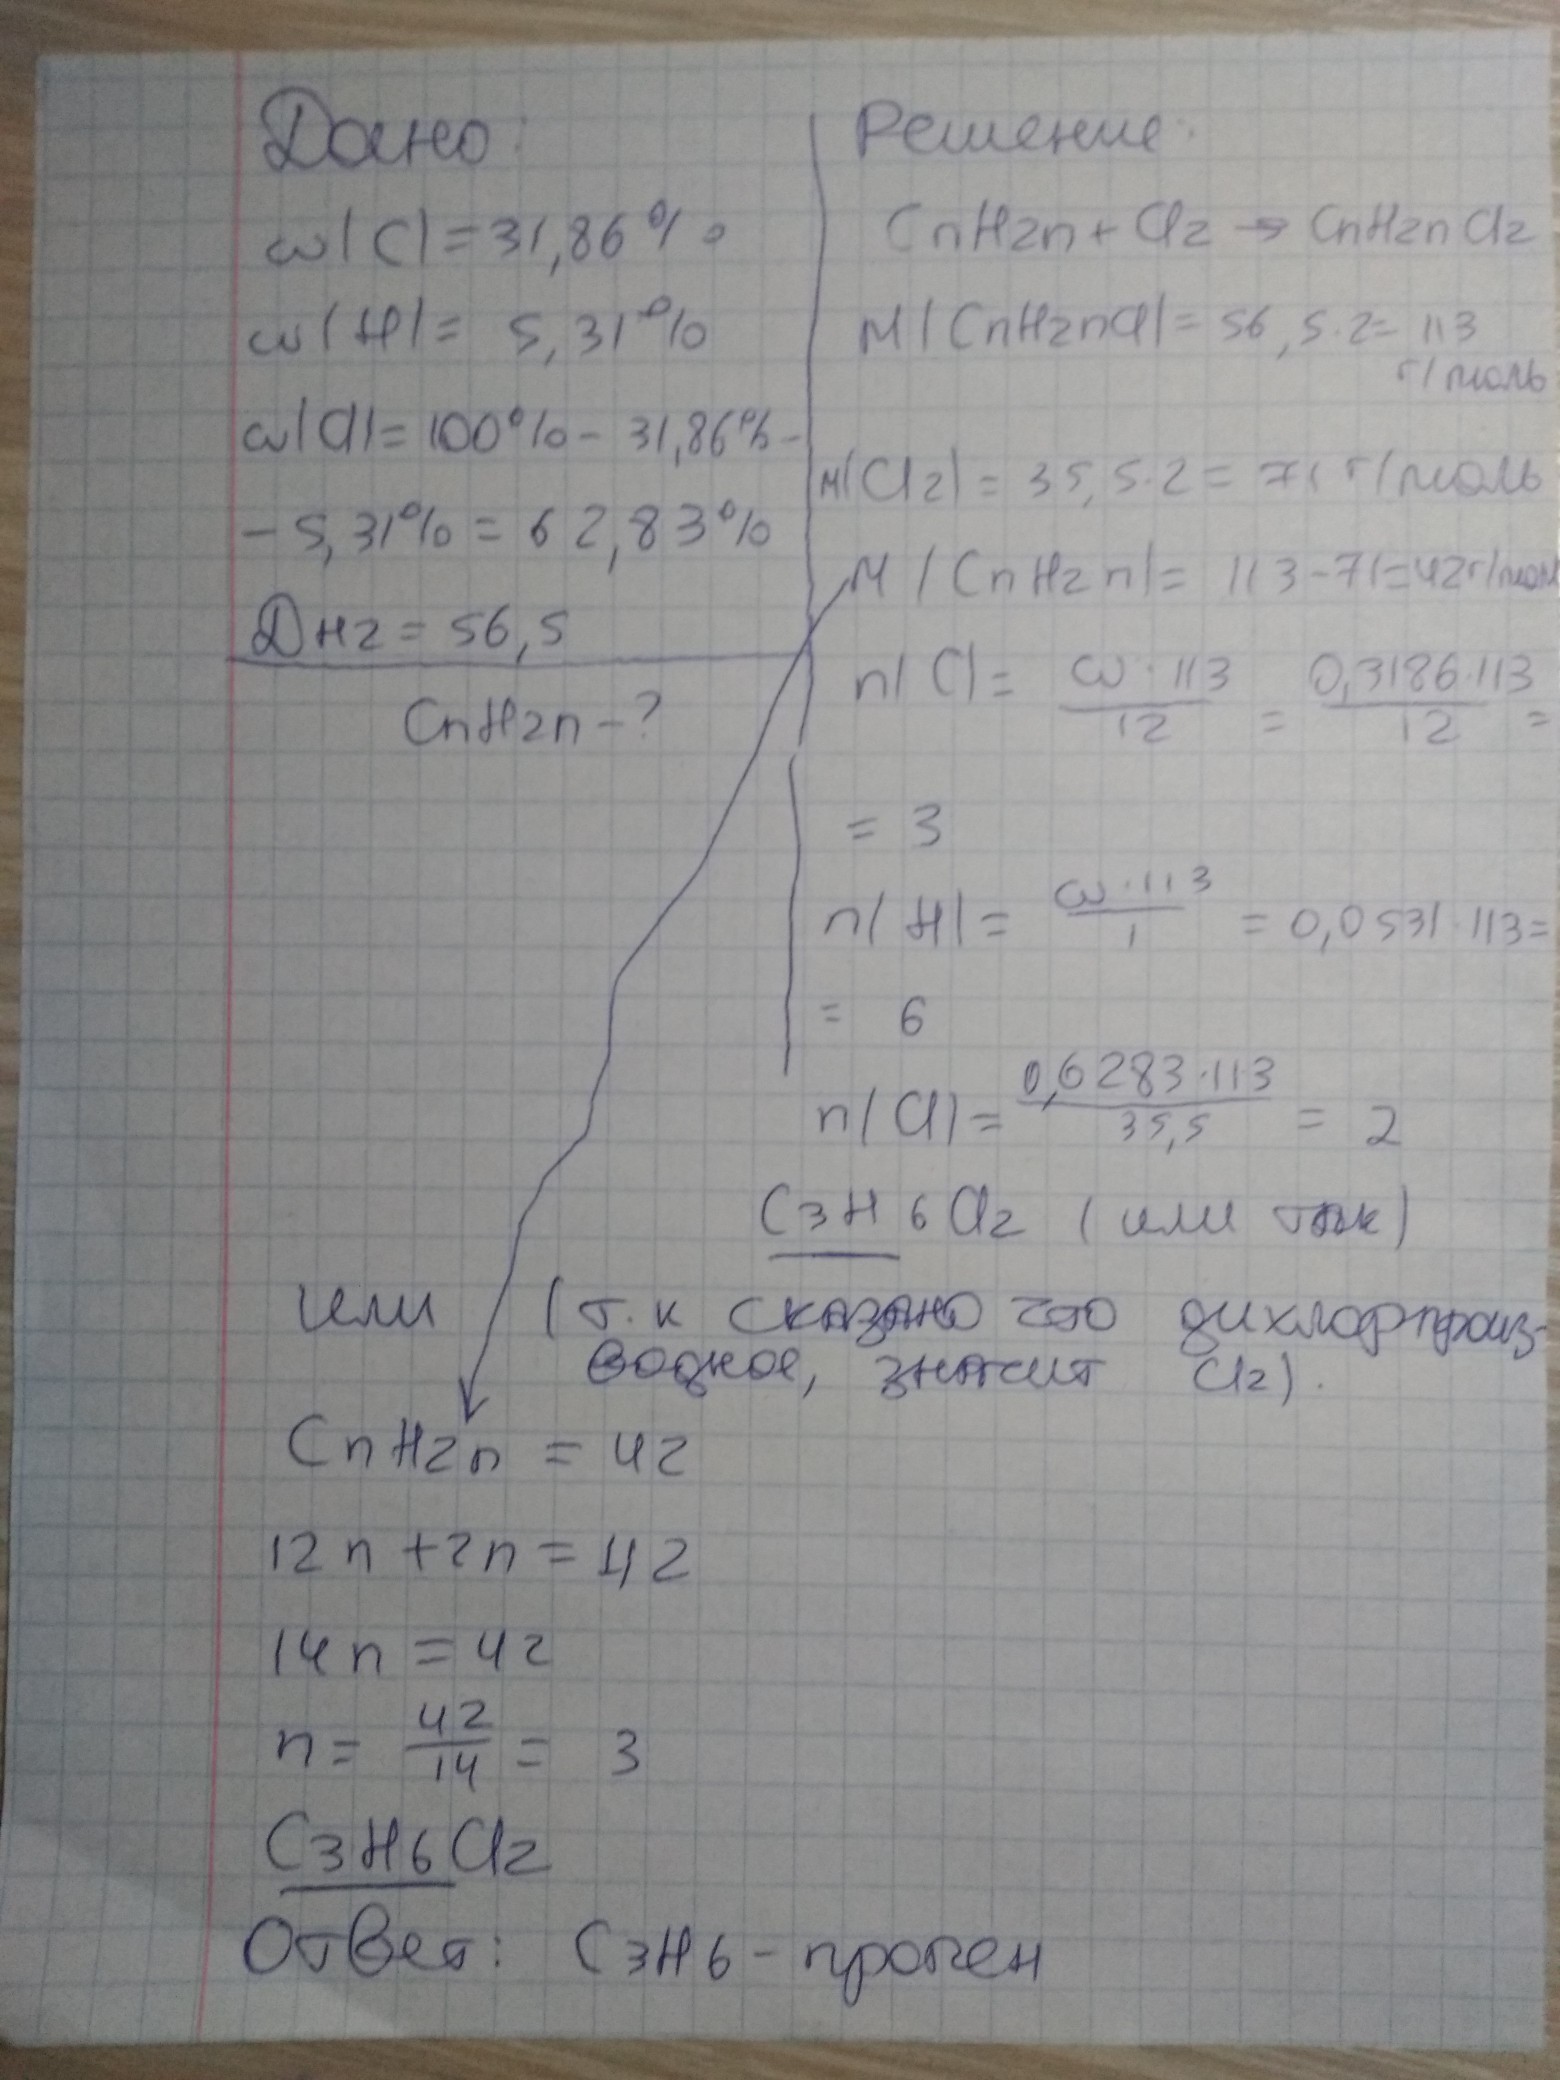 Дано:
ω(C)=31,86%
ω(H)= 5,31%
ω(Cl)=100%- 31,86%-
-5,31%=62,83%
Dн2=56,5
CnH2n-?
Решение:
CnH2n+Cl2→CnH2nCl2
M(CnH2nCl)=56,5·2=113
г/моль
M(Cl2)=35,5·2=71г/моль
M(CnH2n)=113-71=42г/моль
n(C)= ω·113/12 = 0,3186·113/12 =
= 3
n(H)= ω·113/1 = 0,0531·113=
= 6
n(Cl)= 0,6283·113/35,5 = 2
C3H6Cl2 (или так)
или (т.к сказано что дихлорпроиз-
водное, значит Cl2).
CnH2n = 42
12n+2n=42
14n=42
n= 42/14 = 3
C3H6Cl2
Ответ: C3H6-пропен